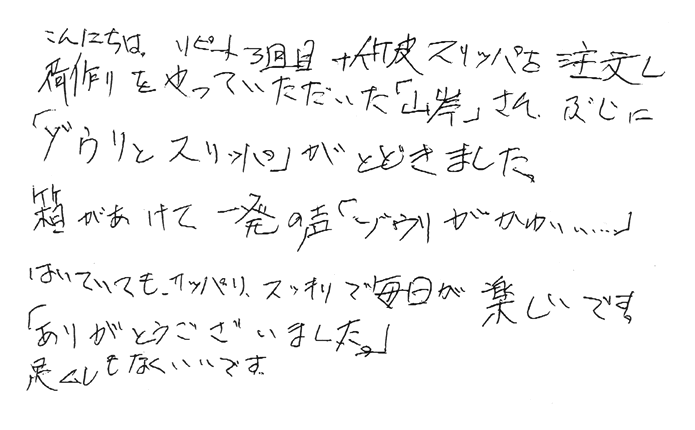 こんにちは。リピート3回目 竹皮スリッパを注文し
荷作りをやっていただいた「山岸」さん、ぶじに
「ゾウリとスリッパ」がとどきました。
箱があけて一発の声「ゾウリがかわいい……」
はいていても、サッパリ、スッキリで毎日が楽しいです。
「ありがとうございました。」
足ムレもなくいいです。